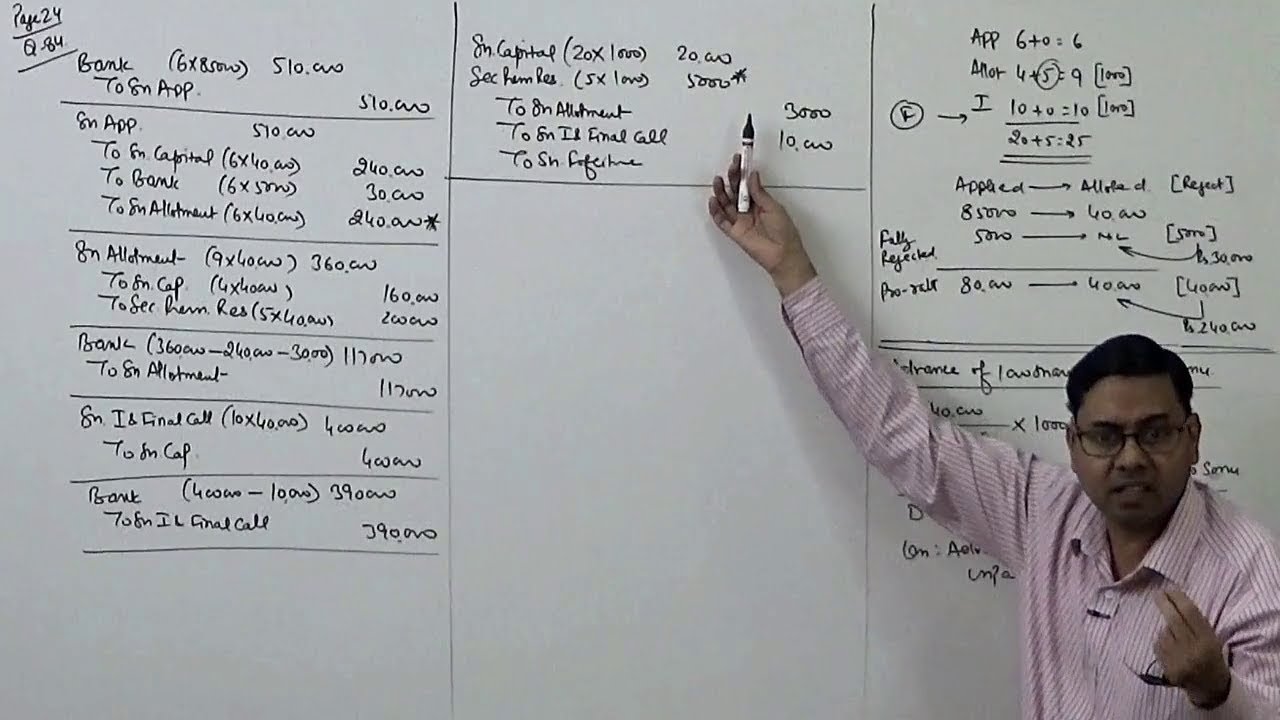 Page 24
Q.84
Bank (6x85000) 510,000
To Sn App. 510,000
Sn App. 510,000
To Sn. Capital (6x40,000) 240,000
To Bank (6x5000) 30,000
To Sn Allotment (6x40,000) 240,000*
Sn Allotment (9x40,000) 360,000
To Sn. Cap. (4x40000) 160,000
To Sec. Prem. Res (5x40,000) 200000
Bank (360,000-240,000-3000) 117000
To Sn Allotment 117000
Sn. I & Final Call (10x40,000) 400000
To Sn Cap. 400000
Bank (400000-10,000) 390000
To Sn I & Final Call 390,000
Sn. Capital (20x1000) 20,000
Sec Prem Res. (5x1000) 5000*
To Sn Allotment 3000
To Sn I & Final Call 10,000
To Sn. Forfeiture
App 6+0=6
Allot 4+5=9 [1000]
F → I 10+0=10 [1000]
20+5=25
Applied → Alloted. [Reject]
85000 → 40,000
Fully Rejected. 5000 → NIL [5000]
Rs.30,000
Pro-rata 80,000 → 40,000 [40,000]
Rs.240,000
Advance of
40,000 x 1000
Sonu
D
Un